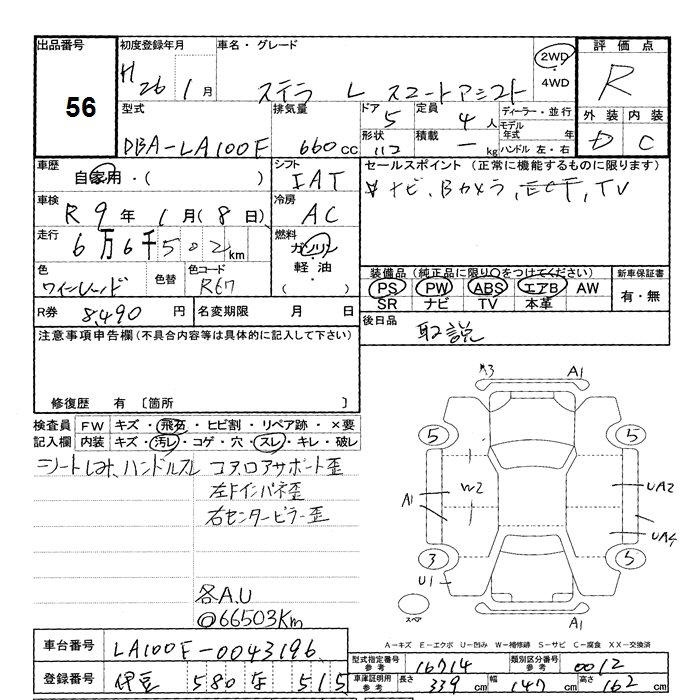 出品番号 56
初度登録年月 H26 1月
車名・グレード ステラ L スマートアシスト
2WD・4WD
評価点 R
外装 D 内装 C
型式 DBA-LA100F
排気量 660cc
ドア 5 形状
定員 4人 積載 - kg
ディーラー・並行
モデル年式 年
ハンドル 左・右
車歴 自家用・( )
シフト IAT
セールスポイント (正常に機能するものに限ります)
ナビ、Bカメラ、ETC、TV
車検 R9年1月(8日)
冷房 AC
走行 6万6千502km
燃料 ガソリン・軽油・( )
色 ワインレッド
色替
色コード R67
装備品 (純正品に限り○をつけてください)
PS PW ABS エアB AW
SR ナビ TV 本革
新車保証書 有・無
R券 8,490円
名変期限 月 日
後日品 取説
注意事項申告欄 (不具合内容等は具体的に記入して下さい)
修復歴 有 〔箇所 〕
検査員記入欄
FW キズ・飛石・ヒビ割・リペア跡・×要
内装 キズ・汚レ・コゲ・穴・スレ・キレ・破レ
シートしみ、ハンドルスレ コア、ロアサポート歪
左Fインパネ歪
右センターピラー歪
各A.U
@66503Km
X3 A1
5 5
A1 W2 UA2
UA4
3 5
U1
スペア A1
A-キズ E-エクボ U-凹み W-補修跡 S-サビ C-腐食 XX-交換済
車台番号 LA100F-0043196
登録番号 伊豆 580 な 515
型式指定番号 参考 16714
類別区分番号 参考 0012
車庫証明用 参考 長さ 339cm 幅 147cm 高さ 162cm